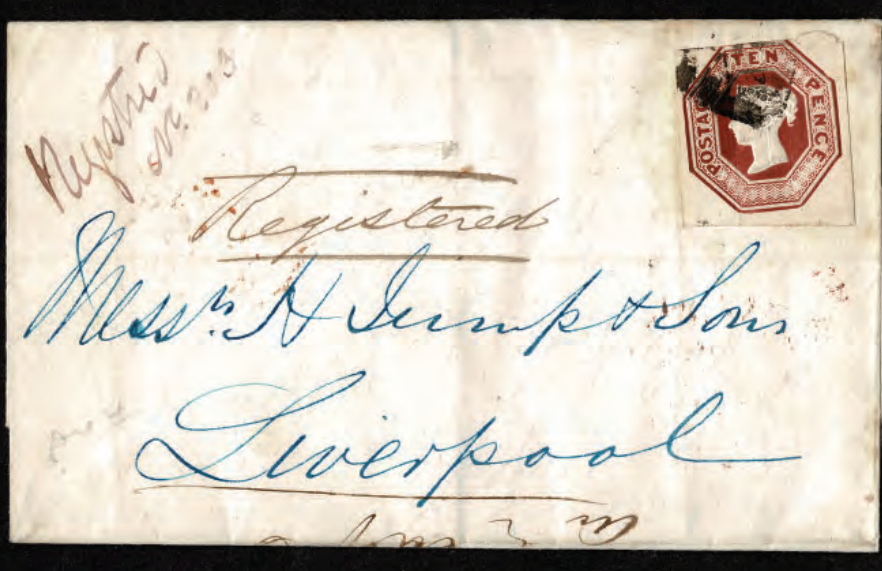 Registered
No. 203
POSTAGE TEN PENCE
Registered
Messrs. H Jump & Sons
Liverpool